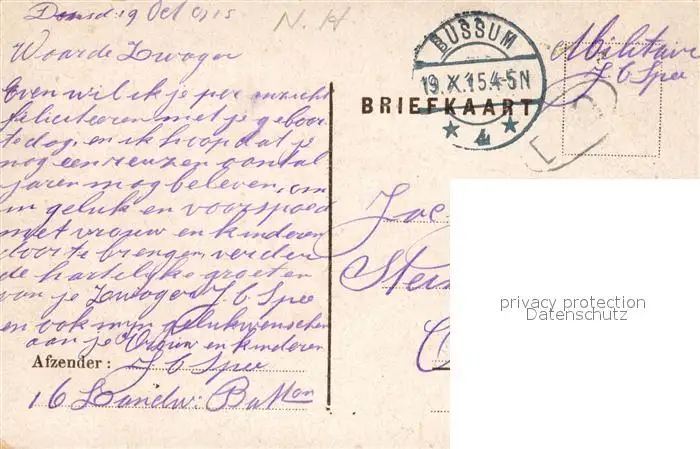 Dinsd: 19 Oct 1915
N. H
Waarde Zwager
Even wil ik je per ansicht
feliciteeren met je geboor
tedag, en ik hoop dat je
nog een reuzen aantal
jaren mog beleven, om
in geluk en voorspoed
met vrouw en kinderen
door te brengen, verder
de hartelijke groeten
van je Zwager J C Spee
en ook mijn gelukwenschen
aan je Vrouw en kinderen
Afzender: J C Spee
16 Landw: Batton
BUSSUM
19.X.15.4-5N
4
BRIEFKAART
Militair
J C Spee
privacy protection
Datenschutz